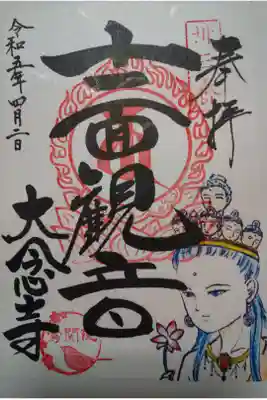 奉拝
十一面観音
大念寺
令和五年四月二日